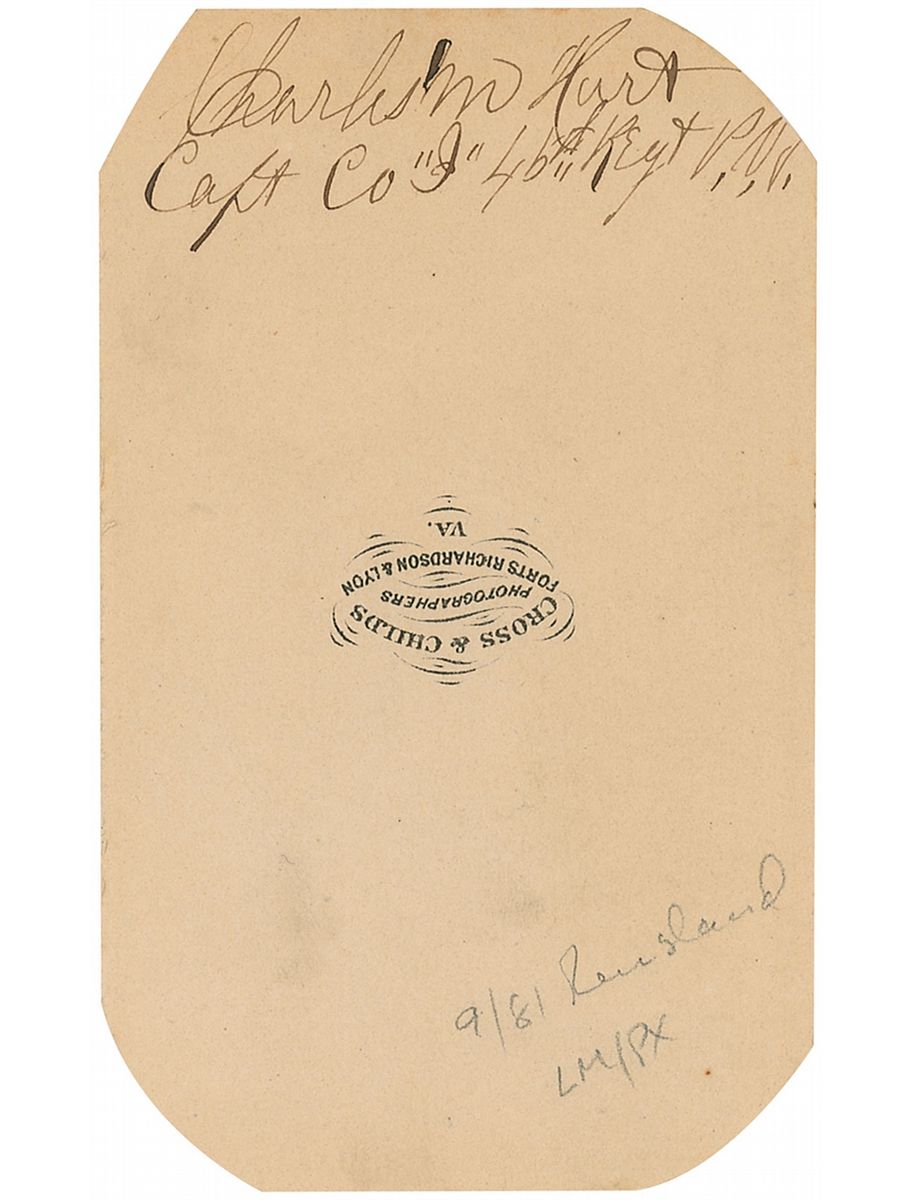 Charles M Hart
Capt Co "I" 45th Regt P.V.V.
CROSS & CHILDS
PHOTOGRAPHERS
FORTS RICHARDSON & LYON
VA.
9/81
LM/PX